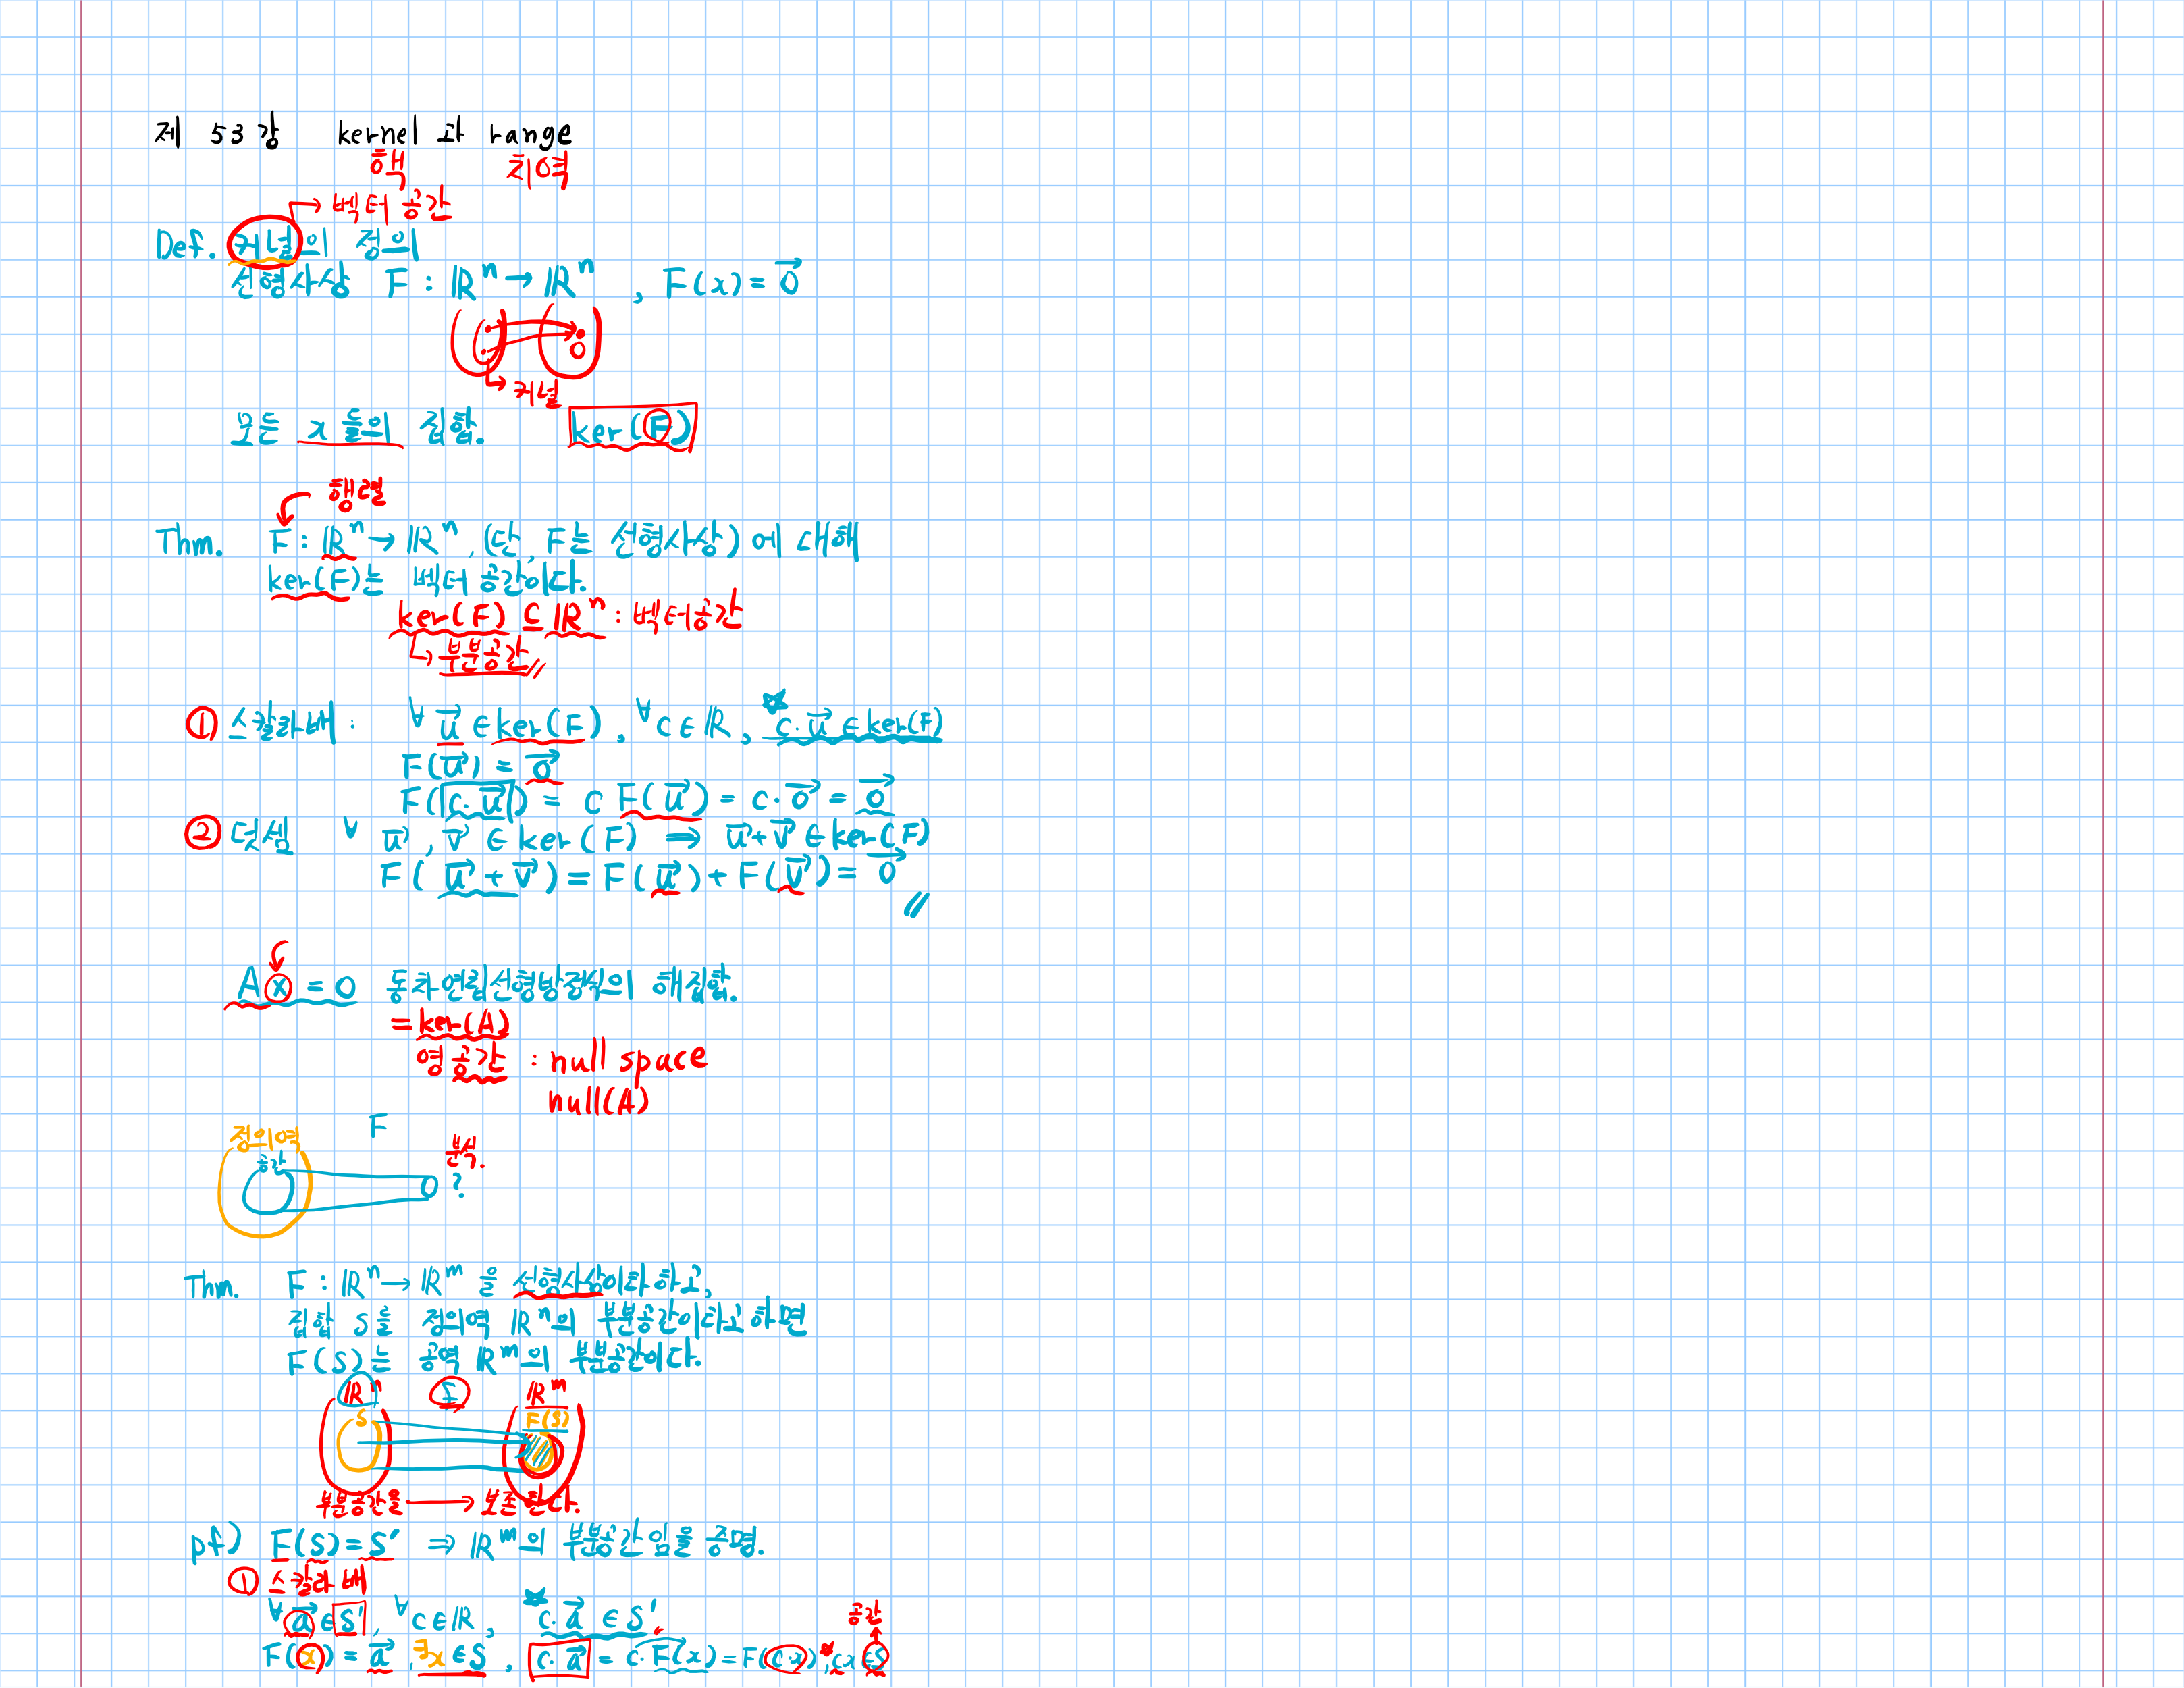 제 53강 kernel 과 range
핵 치역
→ 벡터 공간
Def. 커널의 정의
선형사상 F : ℝⁿ → ℝⁿ , F(x) = 0⃗
0
↳ 커널
모든 x 들의 집합. ker(F)
행렬
Thm. F : ℝⁿ → ℝⁿ, (단, F는 선형사상) 에 대해
ker(F)는 벡터 공간이다.
ker(F) ⊆ ℝⁿ : 벡터공간
↳ 부분공간 //
① 스칼라배 : ∀u⃗ ∈ ker(F), ∀c ∈ ℝ, ☆ c·u⃗ ∈ ker(F)
F(u⃗) = 0⃗
F(c·u⃗) = c F(u⃗) = c·0⃗ = 0⃗
② 덧셈 ∀ u⃗, v⃗ ∈ ker(F) ⟹ u⃗+v⃗ ∈ ker(F)
F(u⃗ + v⃗) = F(u⃗) + F(v⃗) = 0⃗
//
Ax = 0 동차연립선형방정식의 해집합.
= ker(A)
영공간 : null space
null(A)
F
정의역
공간
분석.
?
Thm. F : ℝⁿ → ℝᵐ 을 선형사상이라 하고,
집합 S을 정의역 ℝⁿ의 부분공간이라고 하면
F(S)는 공역 ℝᵐ의 부분공간이다.
ℝⁿ F ℝᵐ
S F(S)
부분공간을 → 보존한다.
pf) F(S) = S' ⇒ ℝᵐ의 부분공간임을 증명.
① 스칼라배
∀a⃗ ∈ S', ∀c ∈ ℝ, ☆ c·a⃗ ∈ S'
공간
F(x) = a⃗, ∃x ∈ S, c·a⃗ = c·F(x) = F(c·x), ☆cx ∈ S